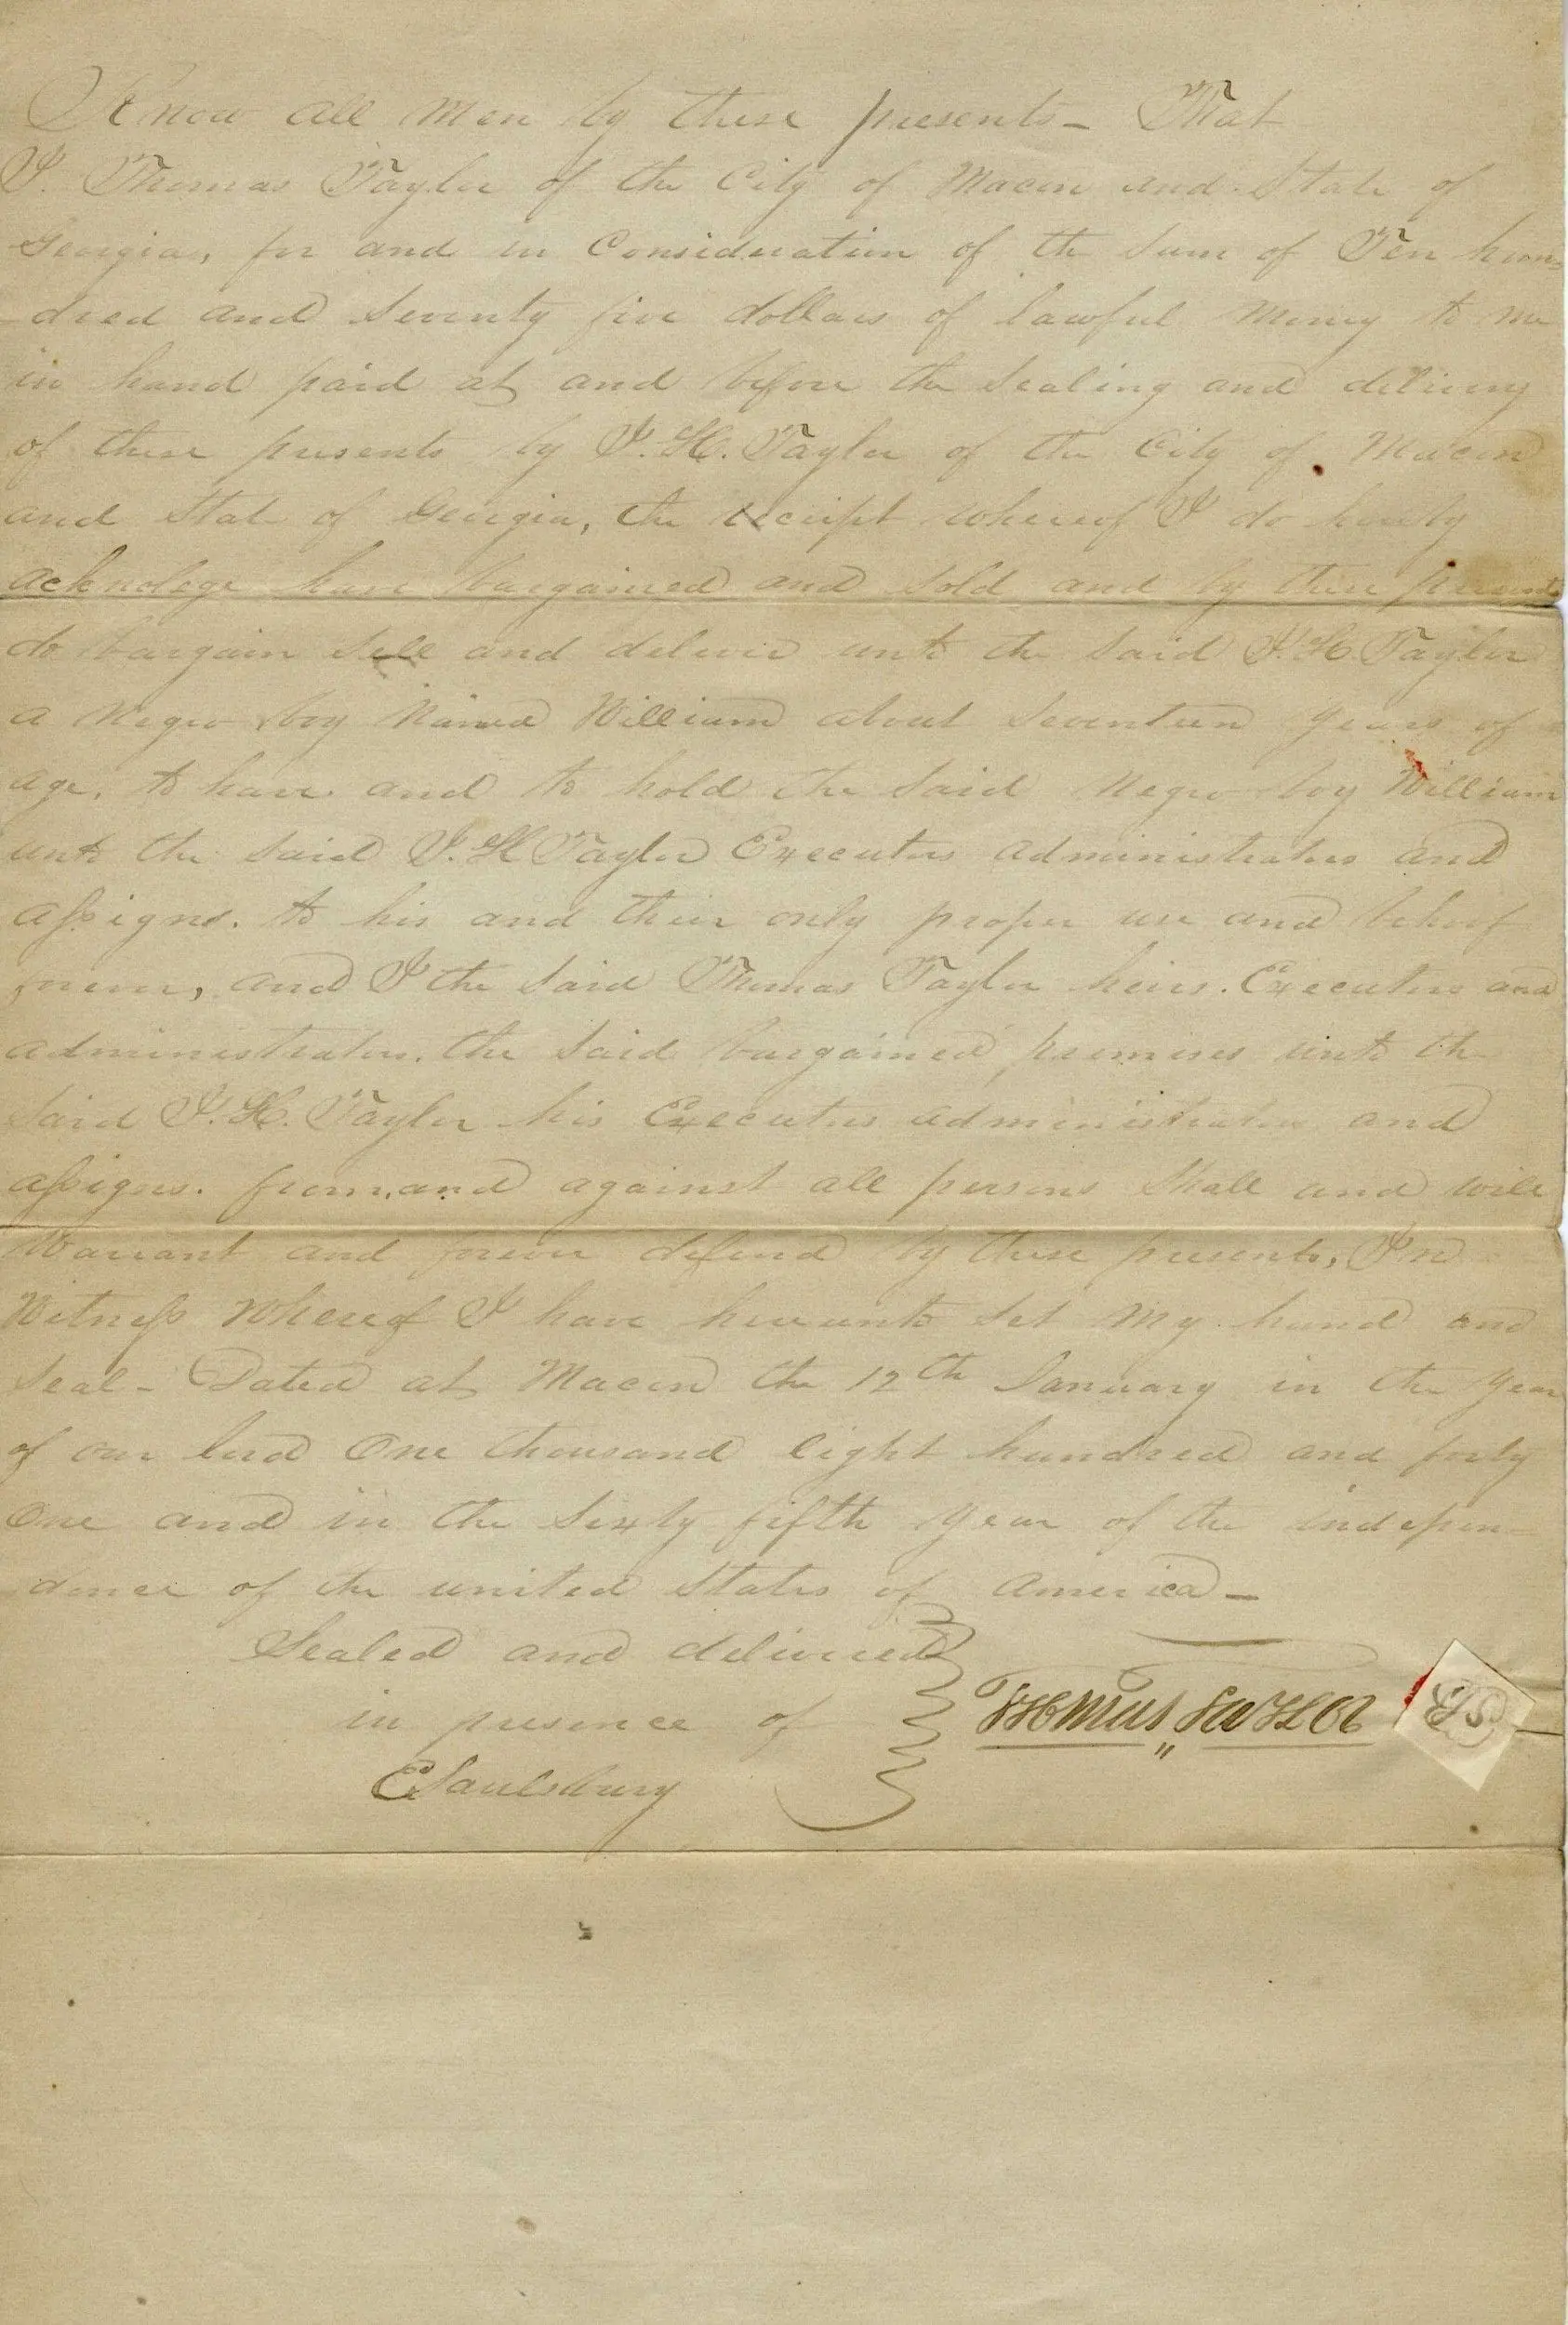 Know all Men by these presents – That
I. Thomas Taylor of the City of Macon and State of
Georgia, for and in Consideration of the Sum of Ten hun=
dred and Seventy five dollars of lawful Money to me
in hand paid at and before the Sealing and delivery
of these presents by J. H. Taylor of the City of Macon
and State of Georgia, the receipt whereof I do hereby
acknologe have bargained and Sold and by these presents
do bargain Sell and deliver unto the Said J. H. Taylor
a Negro boy Named William about Seventeen years of
age. to have and to hold the Said Negro boy William
unto the Said J. H Taylor Executors administrators and
assigns. to his and their only proper use and behoof
forever, and I the Said Thomas Taylor heirs. Executors and
administrators. the Said bargained premises unto the
Said J. H. Taylor his Executors administrators and
assigns. from, and against all persons Shall and will
Warrant and forever defend by these presents, In
Witness Whereof I have hereunto Set My hand and
Seal – Dated at Macon the 12th January in the Year
of our lord One thousand eight hundred and forty
One and in the Sixty fifth Year of the indepen=
dence of the united States of America –
Sealed and delivered
in presence of
Thomas, Taylor LS
E Saulsbury